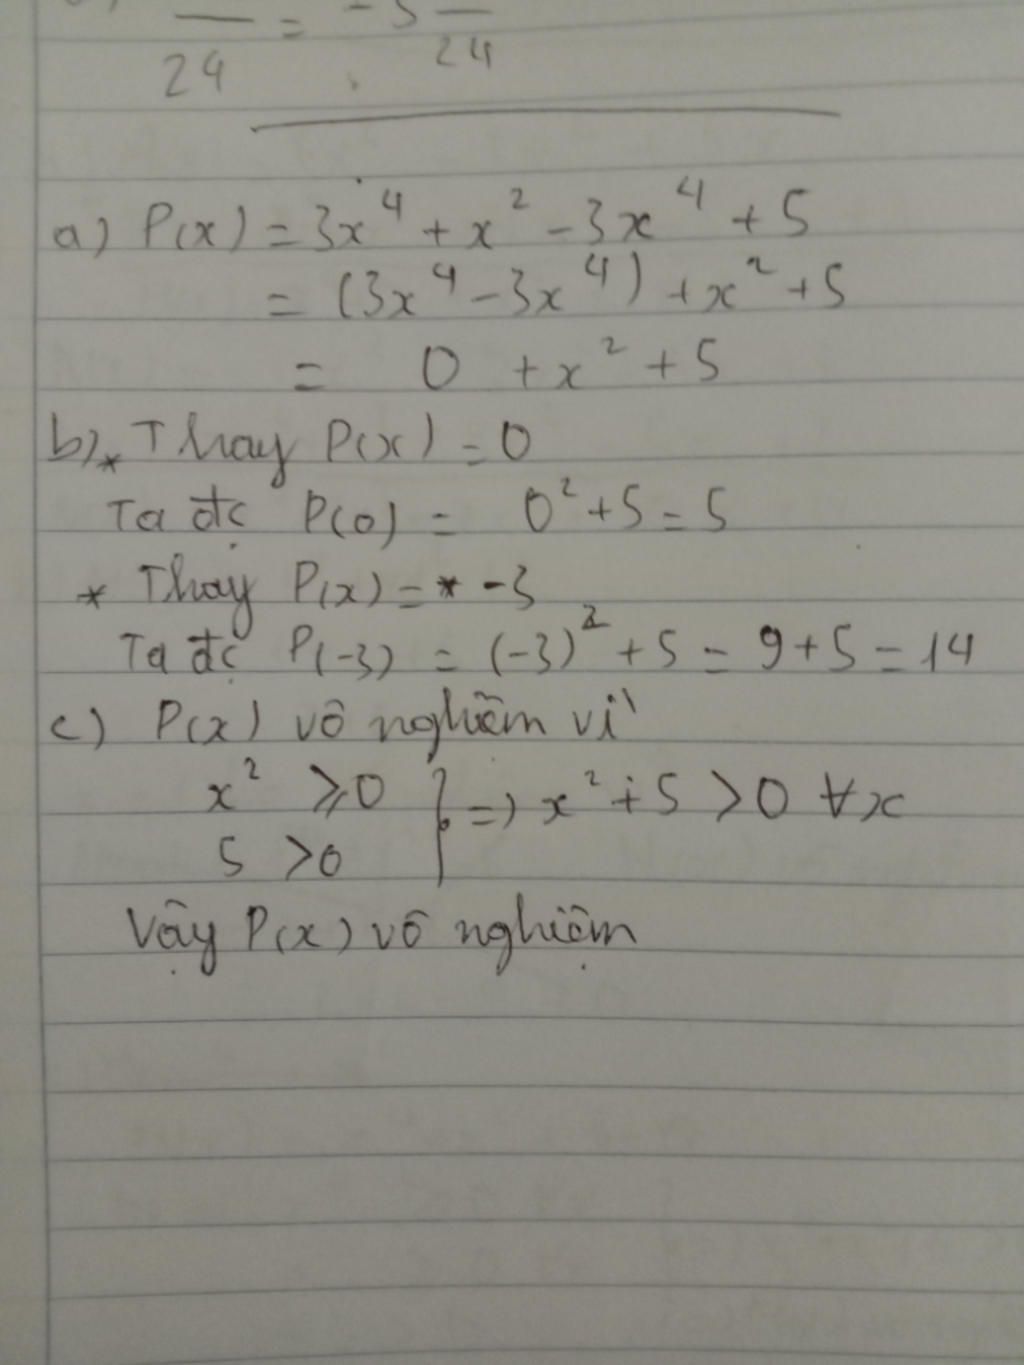 24 = - 5 24
a) P(x) = 3x⁴ + x² - 3x⁴ + 5
= (3x⁴ - 3x⁴) + x² + 5
= 0 + x² + 5
b) * Thay P(x) = 0
Ta đc P(0) = 0² + 5 = 5
* Thay P(x) = * -3
Ta đc P(-3) = (-3)² + 5 = 9 + 5 = 14
c) P(x) vô nghiệm vì
x² ⩾ 0 } => x² + 5 > 0 ∀x
5 > 0
Vậy P(x) vô nghiệm